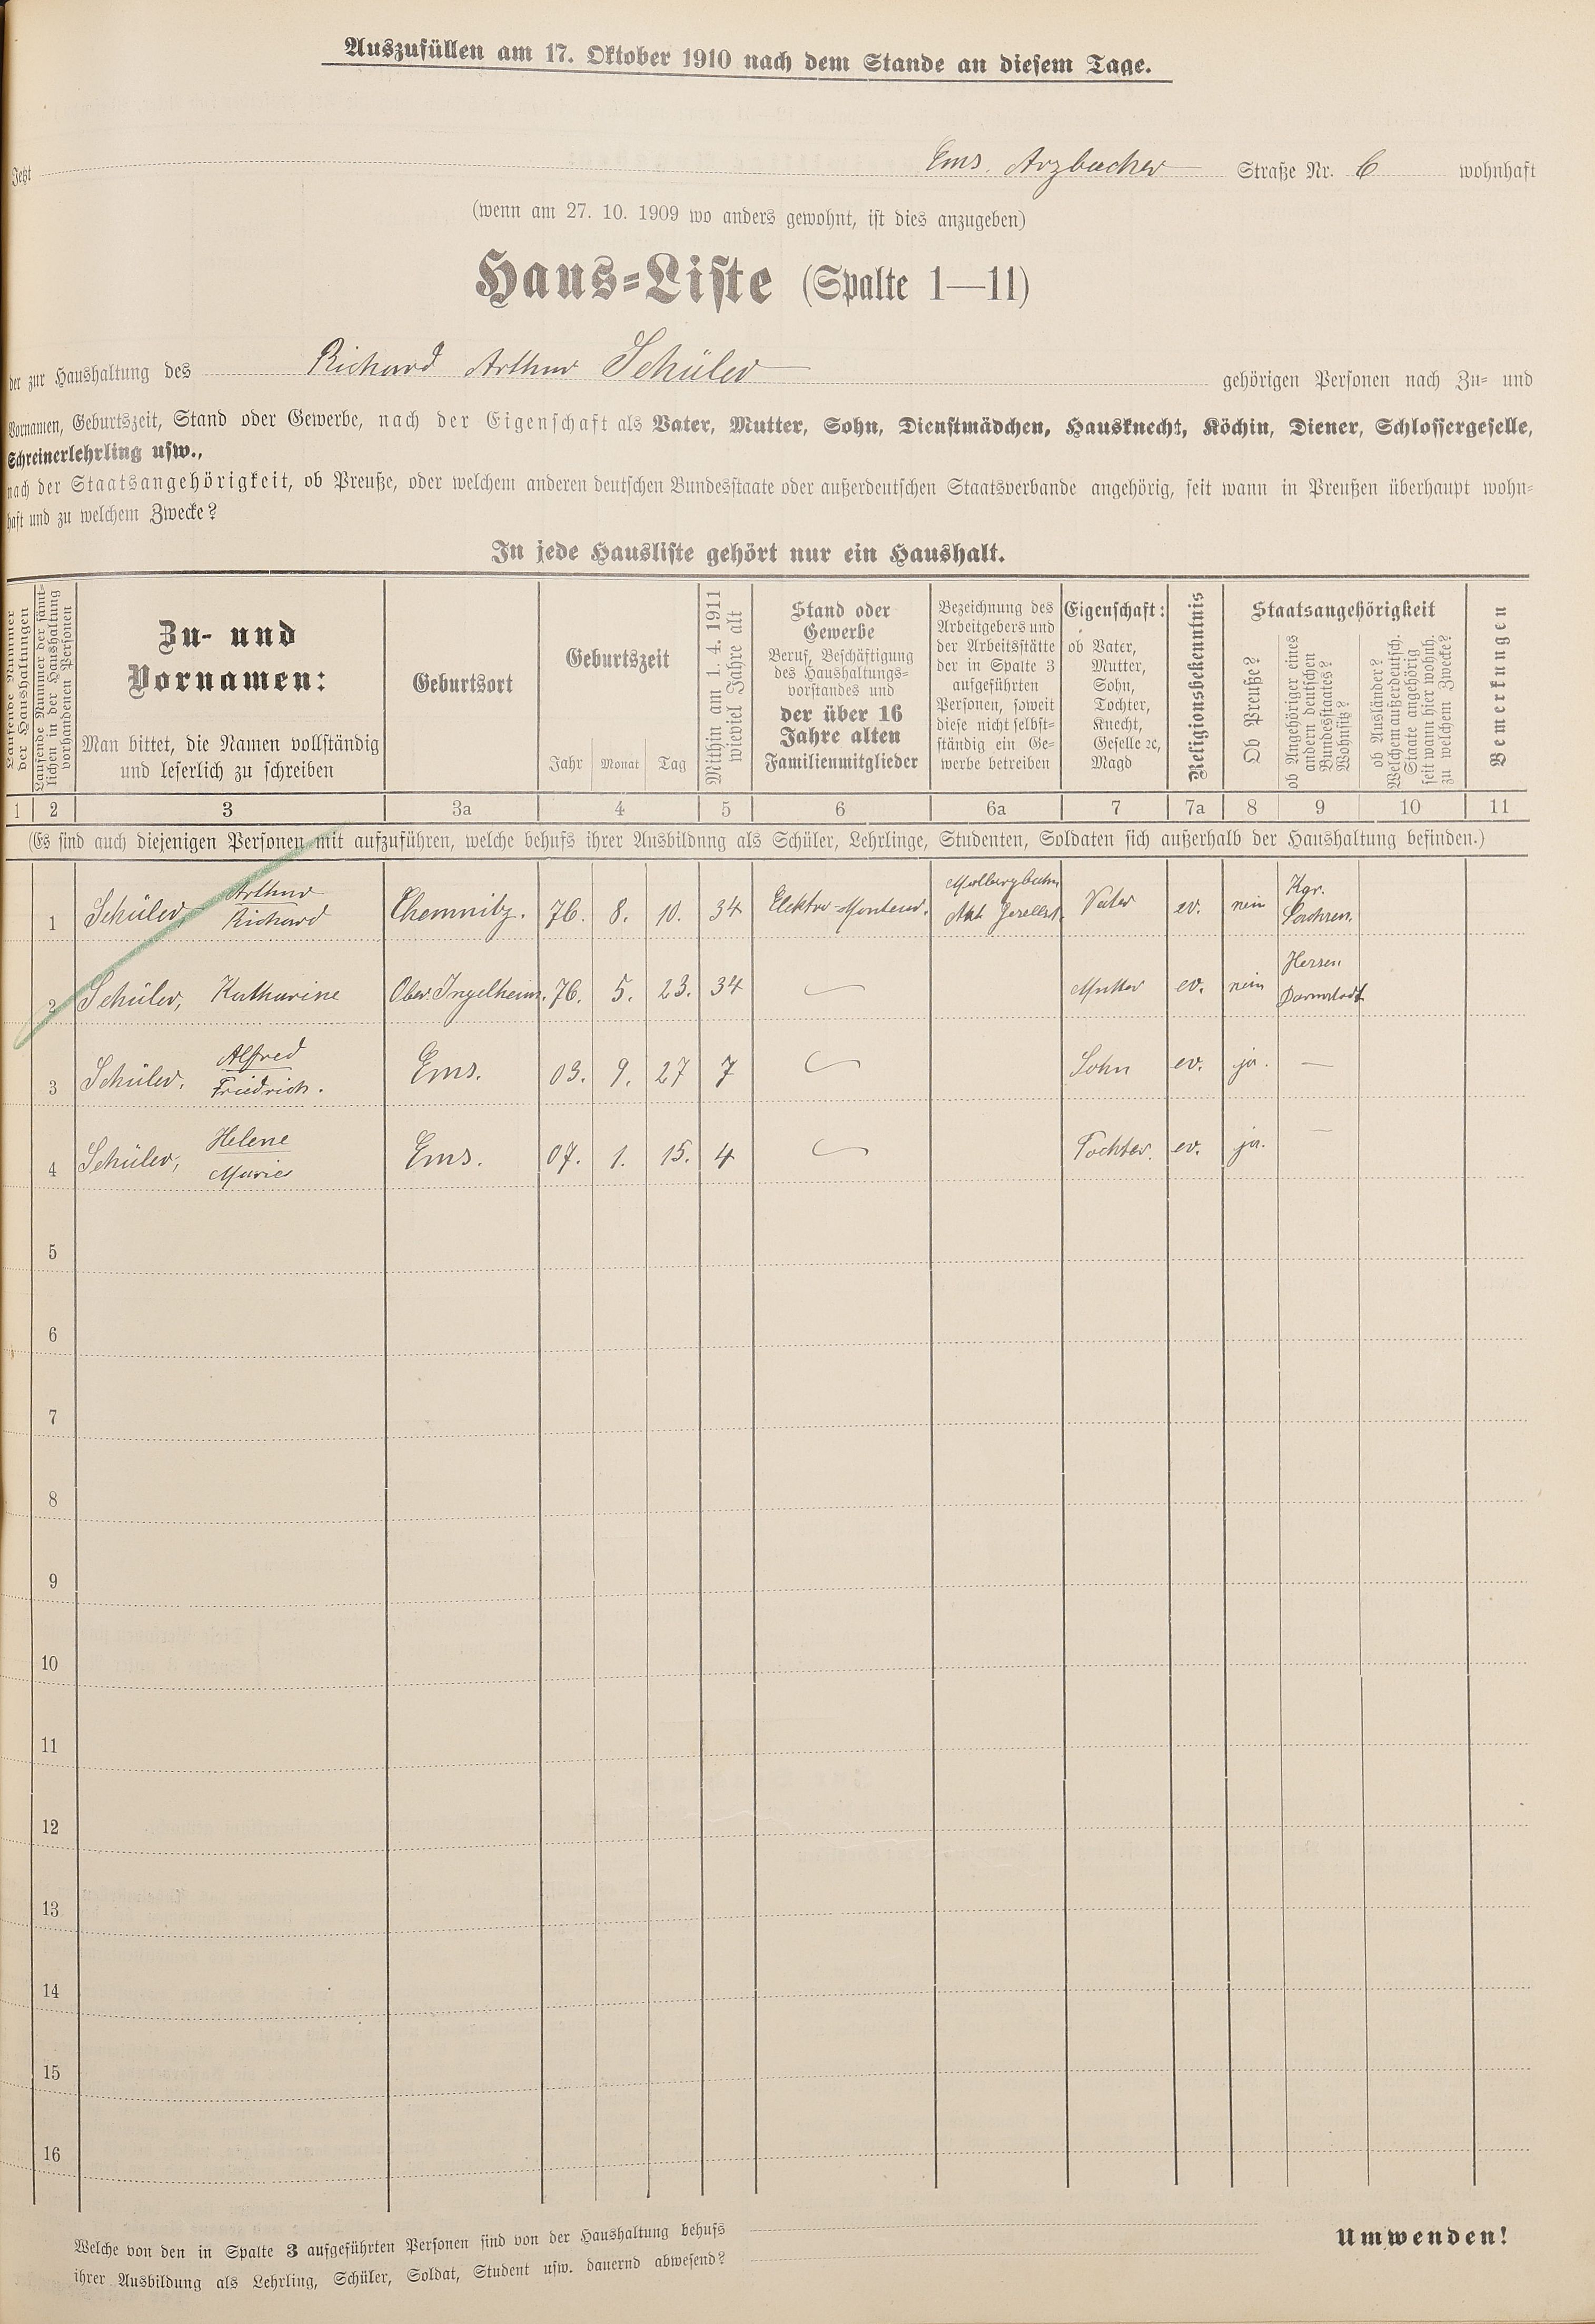 Auszufüllen am 17. Oktober 1910 nach dem Stande an diesem Tage.
Jetzt Ems. Arzbacher Straße Nr. 6 wohnhaft
(wenn am 27. 10. 1909 wo anders gewohnt, ist dies anzugeben)
Haus-Liste (Spalte 1—11)
der zur Haushaltung des Richard Arthur Schüler gehörigen Personen nach Zu- und
Vornamen, Geburtszeit, Stand oder Gewerbe, nach der Eigenschaft als Vater, Mutter, Sohn, Dienstmädchen, Hausknecht, Köchin, Diener, Schlossergeselle,
Schreinerlehrling usw.,
nach der Staatsangehörigkeit, ob Preuße, oder welchem anderen deutschen Bundesstaate oder außerdeutschen Staatsverbande angehörig, seit wann in Preußen überhaupt wohn-
haft und zu welchem Zwecke?
In jede Hausliste gehört nur ein Haushalt.
Laufende Nummer
der Haushaltungen
Laufende Nummer der sämt-
lichen in der Haushaltung
vorhandenen Personen
Zu- und
Vornamen:
Man bittet, die Namen vollständig
und leserlich zu schreiben
Geburtsort
Geburtszeit
Jahr Monat Tag
Mithin am 1. 4. 1911
wieviel Jahre alt
Stand oder
Gewerbe
Beruf, Beschäftigung
des Haushaltungs-
vorstandes und
der über 16
Jahre alten
Familienmitglieder
Bezeichnung des
Arbeitgebers und
der Arbeitsstätte
der in Spalte 3
aufgeführten
Personen, soweit
diese nicht selbst-
ständig ein Ge-
werbe betreiben
Eigenschaft:
ob Vater,
Mutter,
Sohn,
Tochter,
Knecht,
Geselle ꝛc,
Magd
Religionsbekenntnis
Staatsangehörigkeit
Ob Preuße?
ob Angehöriger eines
andern deutschen
Bundesstaates?
Wohnsitz?
ob Ausländer?
Welchem außerdeutsch.
Staate angehörig
seit wann hier wohnh.
zu welchem Zwecke?
Bemerkungen
1 2 3 3a 4 5 6 6a 7 7a 8 9 10 11
(Es sind auch diejenigen Personen mit aufzuführen, welche behufs ihrer Ausbildung als Schüler, Lehrlinge, Studenten, Soldaten sich außerhalb der Haushaltung befinden.)
Arthur Malbergbahn Kgr.
1 Schüler, Richard Chemnitz. 76. 8. 10. 34 Elektro-Monteur. Akt. Gesellsch. Vater ev. nein Sachsen.
Hessen
2 Schüler, Katharine Ober-Ingelheim. 76. 5. 23. 34 Mutter ev. nein Darmstadt
Alfred
3 Schüler, Friedrich. Ems. 03. 9. 27 7 Sohn ev. ja. —
Helene
4 Schüler, Marie Ems. 07. 1. 15. 4 Tochter. ev. ja. —
5
6
7
8
9
10
11
12
13
14
15
16
Welche von den in Spalte 3 aufgeführten Personen sind von der Haushaltung behufs
ihrer Ausbildung als Lehrling, Schüler, Soldat, Student usw. dauernd abwesend?
Umwenden!